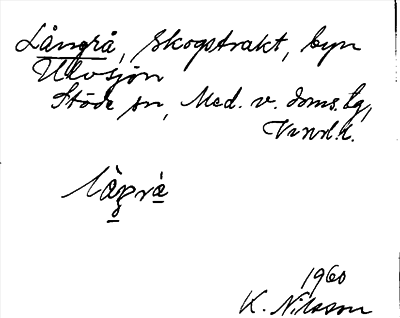 Långrå, skogstrakt, byn
Ulvsjön
Stöde sn, Med. v. doms. tg,
Vrnd. l.
låŋrå
1960
K. Nilsson